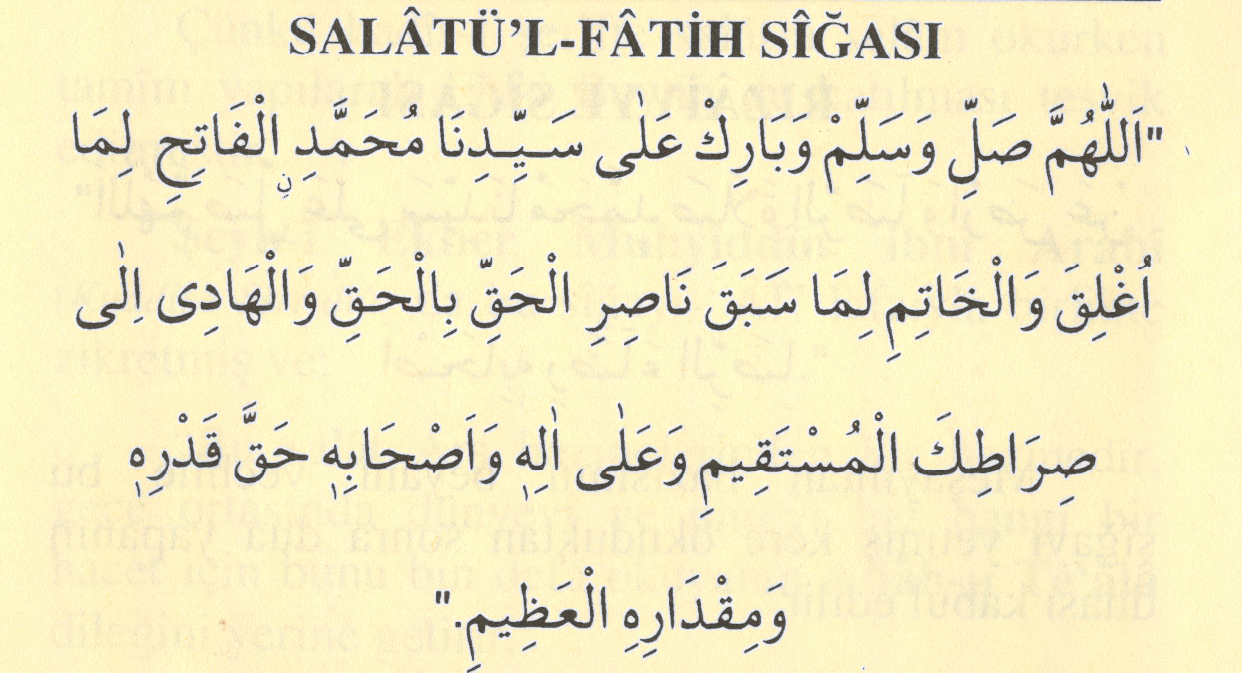 SALÂTÜ’L-FÂTİH SÎĞASI
"اَللّٰهُمَّ صَلِّ وَسَلِّمْ وَبَارِكْ عَلٰى سَـيِّـدِنَا مُحَمَّدِنِ الْفَاتِحِ لِمَا
اُغْلِقَ وَالْخَاتِمِ لِمَا سَبَقَ نَاصِرِ الْحَقِّ بِالْحَقِّ وَالْهَادِى اِلٰى
صِرَاطِكَ الْمُسْتَقِيمِ وَعَلٰى اٰلِهٖ وَاَصْحَابِهٖ حَقَّ قَدْرِهٖ
وَمِقْدَارِهِ الْعَظِيمِ."